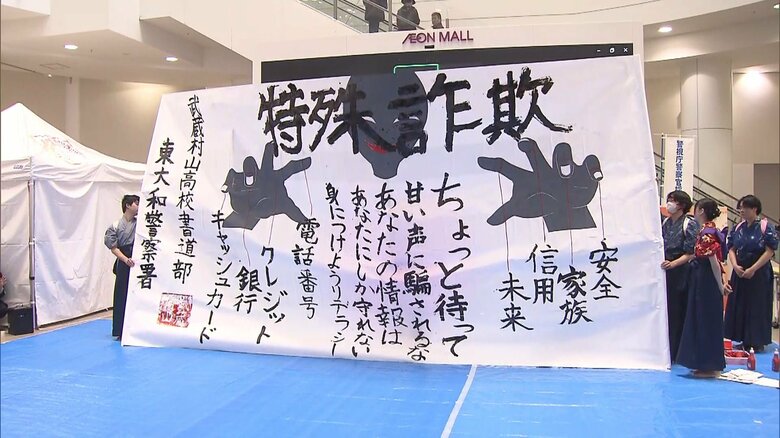 ÆON MALL
特殊詐欺
安全
家族
信用
未来
ちょっと待って
甘い声に騙されるな
あなたの情報は
あなたにしか守れない
身につけようリテラシー
電話番号
クレジット
銀行
キャッシュカード
武蔵村山高校書道部
東大和警察署
警視庁警察官